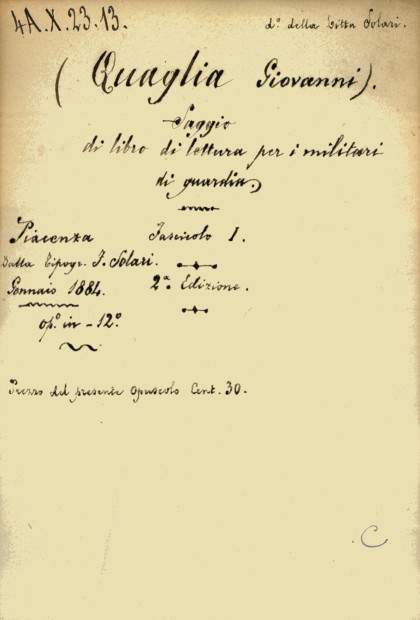 4A.X.23.13.
d.º della Ditta Solari.
(Quaglia Giovanni).
Saggio
di libro di lettura per i militari
di guardia.
Piacenza Fascicolo I.
Dalla Tipogr. F. Solari.
Gennaio 1884. 2ª Edizione.
op.º in-12º.
Prezzo del presente opuscolo Cent. 30.
C